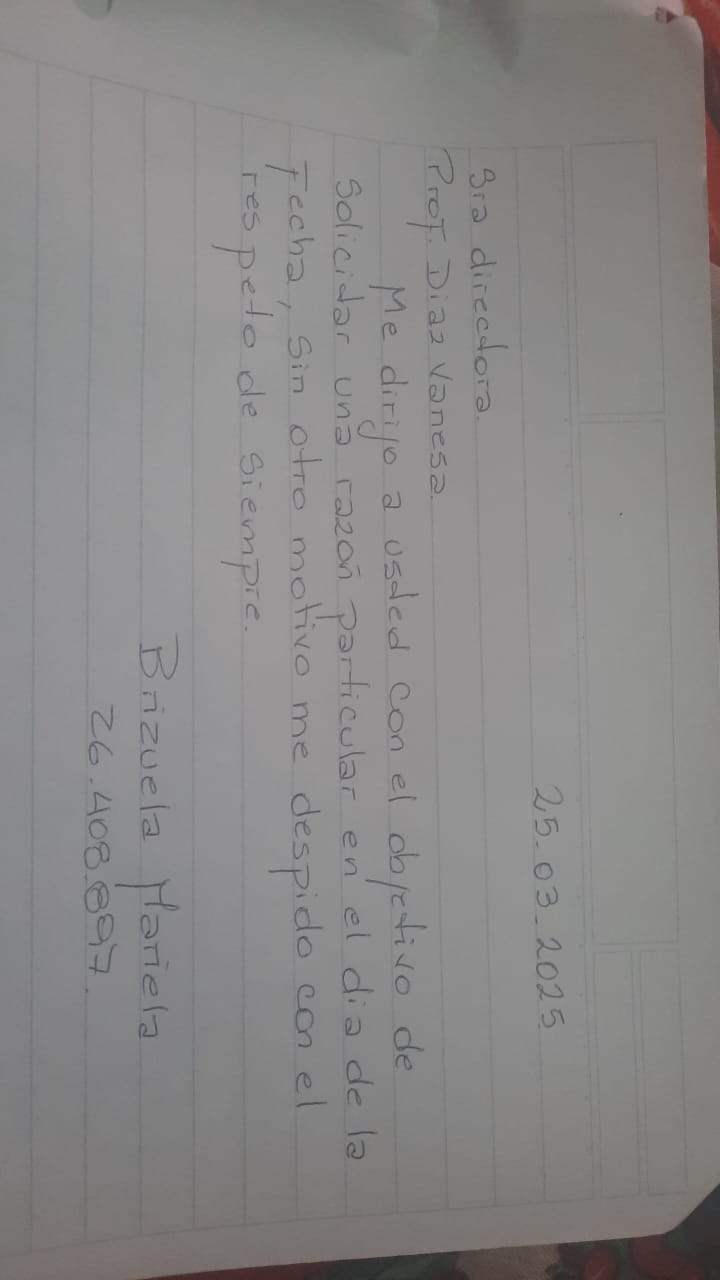 25.03.2025
Sra directora.
Prof. Diaz Vanesa
Me dirijo a usted con el objetivo de
Solicitar una razón particular en el dia de la
Fecha, Sin otro motivo me despido con el
respeto de siempre.
Brizuela Mariela
26.408.897.